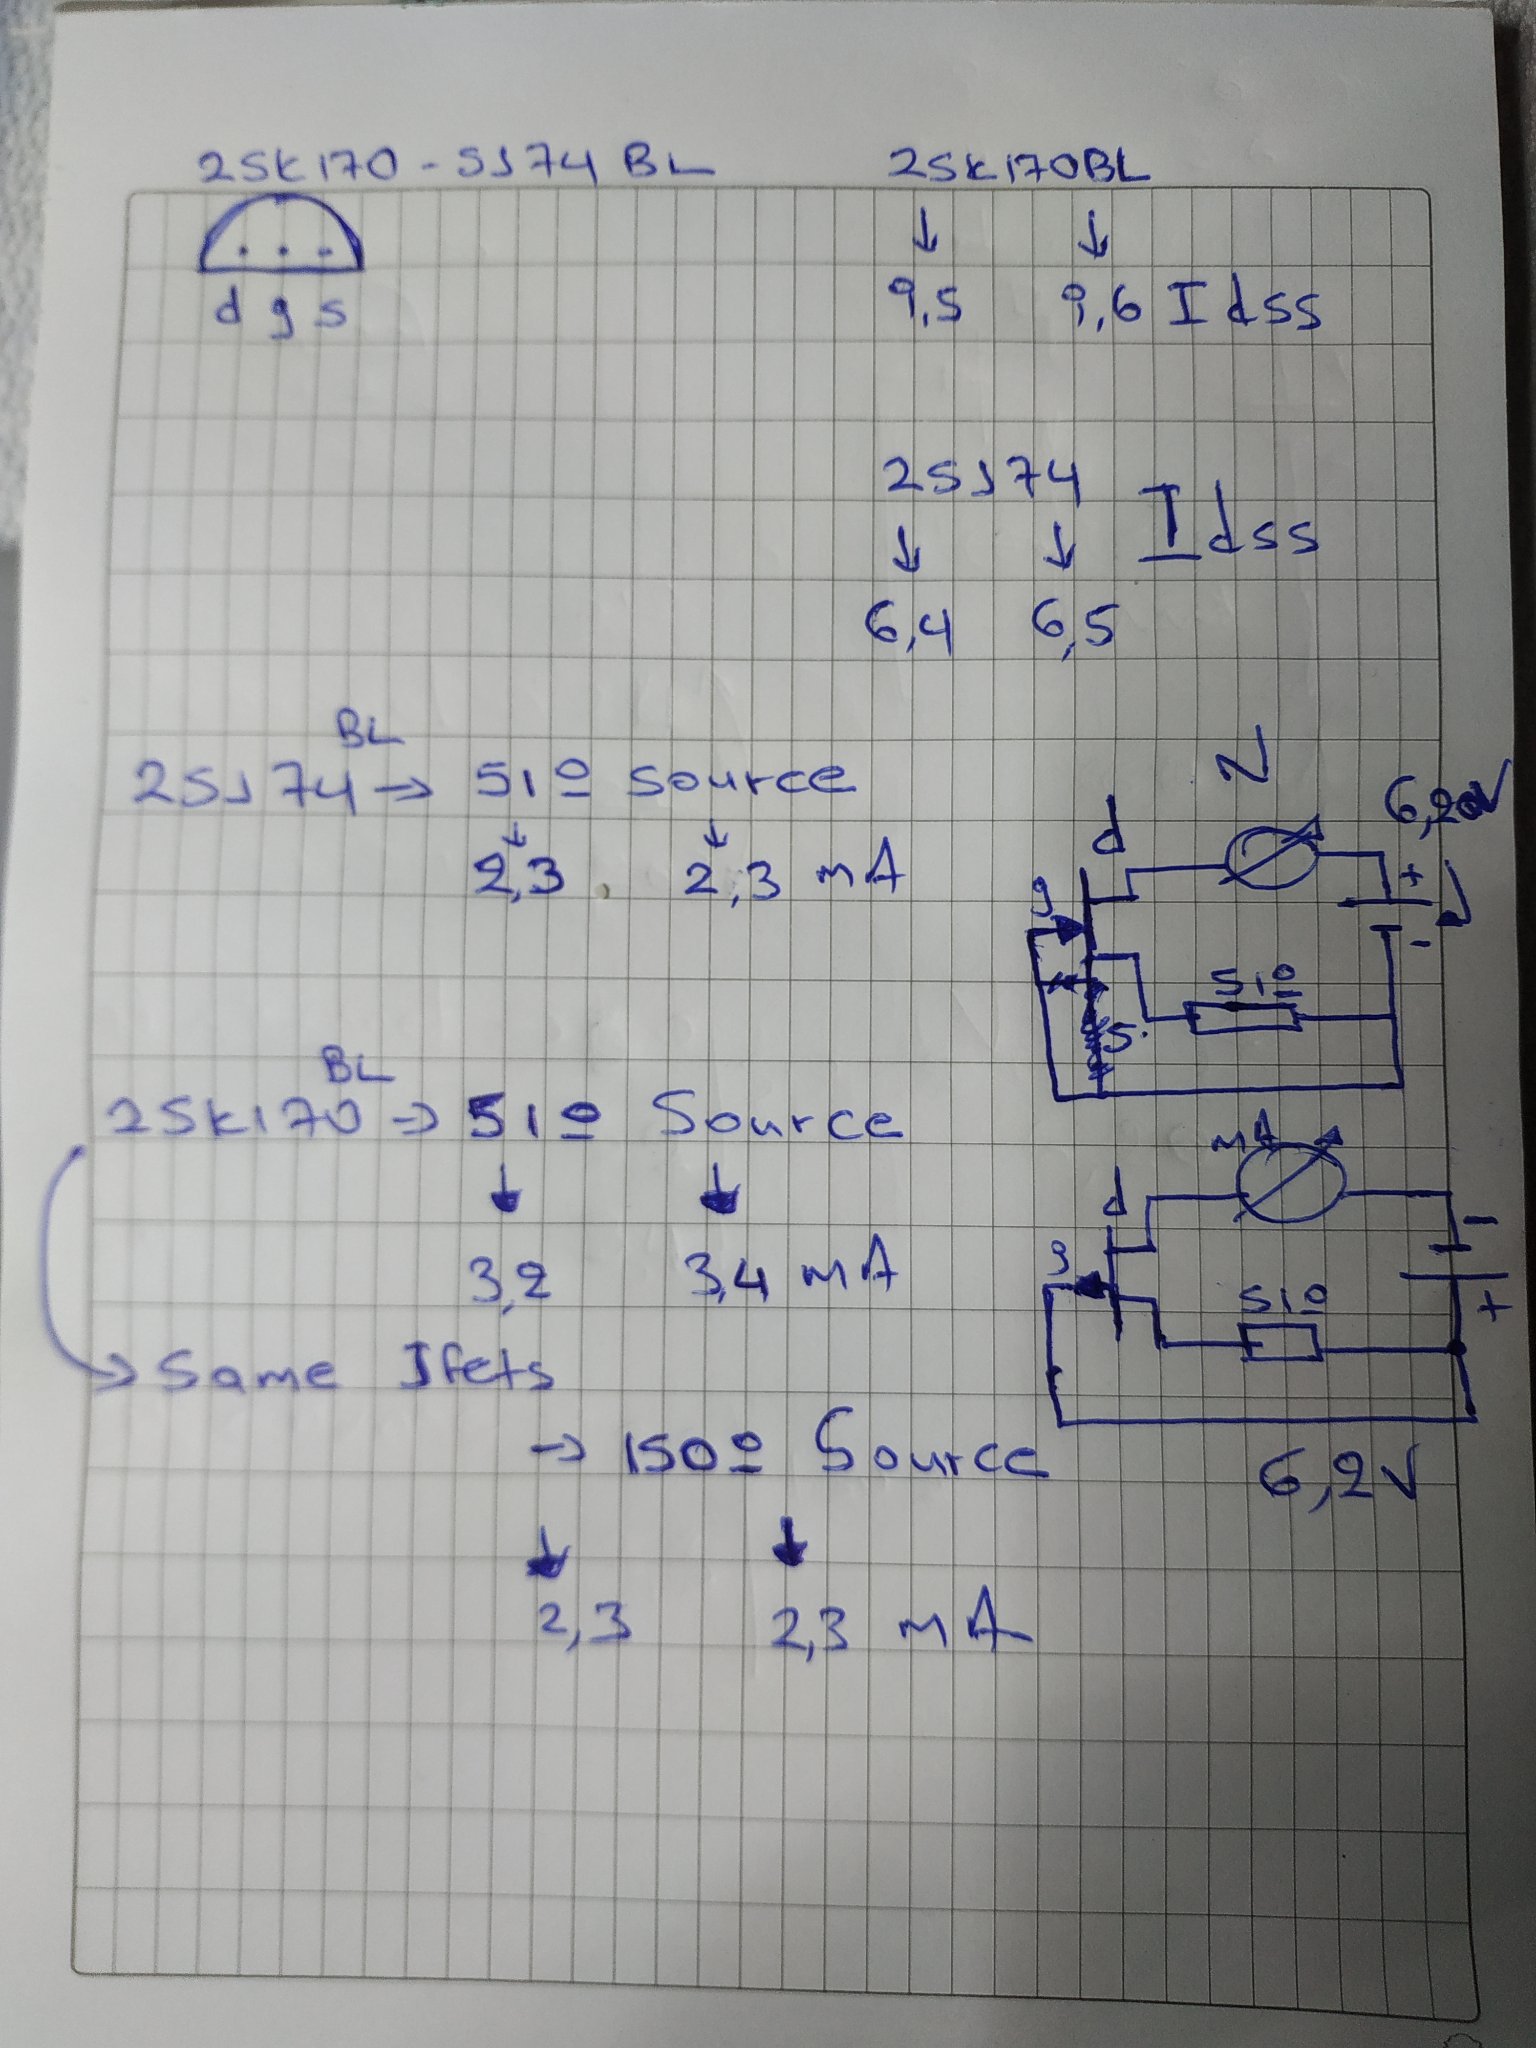 2SK170 - SJ74 BL
2SK170BL
d g s
9,5 9,6 Idss
2SJ74
Idss
6,4 6,5
BL
2SJ74 → 51º source
2,3 2,3 mA
N
6,20V
d
+
g
-
51º
S
BL
2SK170 → 51º Source
3,2 3,4 mA
mA
d
-
g
51º
+
→ Same Jfets
→ 150º Source
6,2V
2,3 2,3 mA